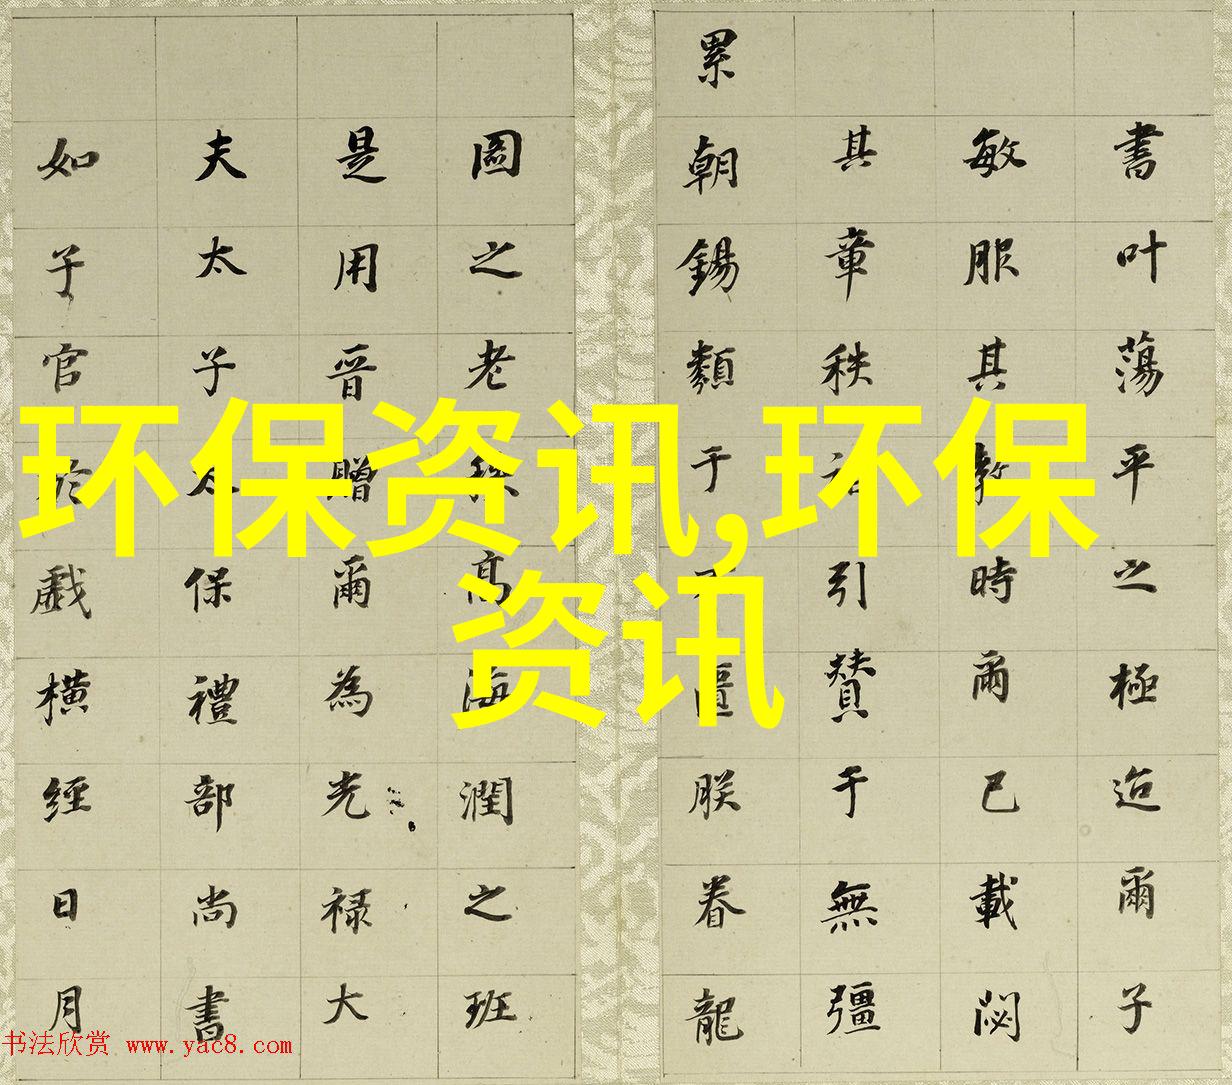 書叶蕩平之極迨爾子
敏服其教時爾已載閟
其章秩引贊于無彊
累朝錫類于匱朕眷龍
圖之老秩高海潤之班
是用晉贈爾為光祿大
夫太子太保禮部尚書
如子官於戲橫經日月
环保资讯,环保
资讯
书法欣赏 www.yac8.com